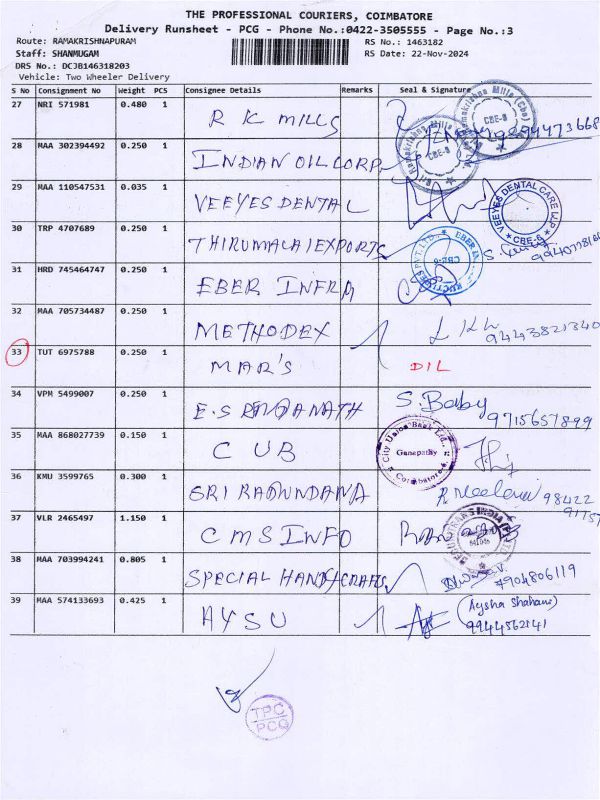 THE PROFESSIONAL COURIERS, COIMBATORE
Delivery Runsheet - PCG - Phone No.:0422-3505555 - Page No.:3
Route: RAMAKRISHNAPURAM RS No.: 1463182
Staff: SHANMUGAM RS Date: 22-Nov-2024
DRS No.: DCJB146318203
Vehicle: Two Wheeler Delivery
S No Consignment No Weight PCS Consignee Details Remarks Seal & Signature
27 NRI 571981 0.480 1 R K MILLS
28 MAA 302394492 0.250 1 INDIAN OIL CORP
29 MAA 110547531 0.035 1 VEEYES DENTAL
VEEYES DENTAL CARE CBE-6
30 TRP 4707689 0.250 1 THIRUMALAI EXPORTS
31 HRD 745464747 0.250 1 EBER INFRA
32 MAA 705734487 0.250 1 METHODEX 9443821340
33 TUT 6975788 0.250 1 MAR'S DIL
34 VPM 5499007 0.250 1 E.S RANGANATH S. Baby 9715657899
35 MAA 868027739 0.150 1 CUB
City Union Bank Ltd., Ganapathy Coimbatore
36 KMU 3599765 0.300 1 SRI RAGUNDANA
37 VLR 2465497 1.150 1 CMS INFO
38 MAA 703994241 0.805 1 SPECIAL HANDYCRAFTS 7904806119
39 MAA 574133693 0.425 1 AYSU (Aysha Shahana)
9944562141
TPC
PCG